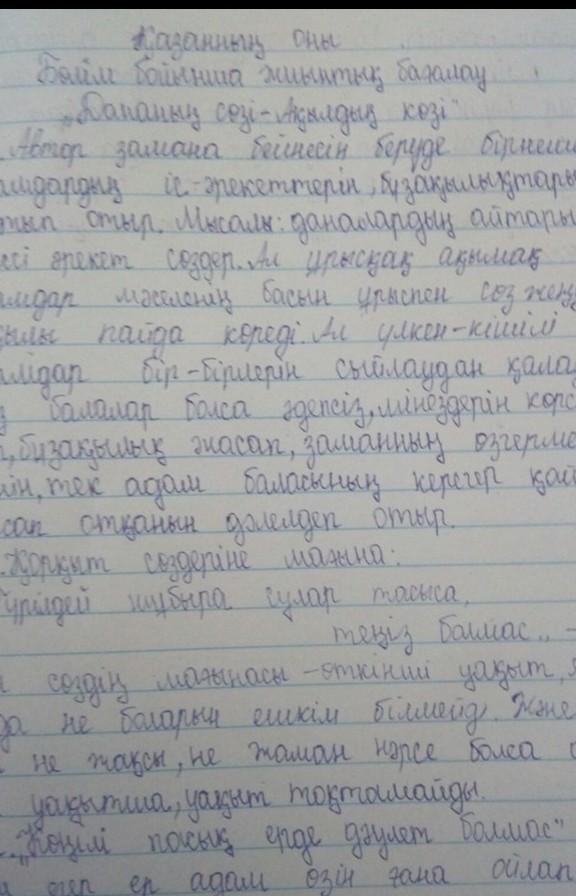 Қазанның оны
Бөлім бойынша жиынтық бағалау
„Дананың сөзі-Ақылдың көзі"
. Автор замана бейнесін беруде
іс-әрекеттерін, бұзақылықтары
отыр. Мысалы: даналардың айтары
әрекет сөздер. Ал ұрысқақ ақымақ
мәселенің басын ұрыспен сөз
пайда көреді. Ал үлкен-кішілі
бір-бірлерін сыйлаудан
балалар болса әдепсіз, мінездерін
бұзақылық жасап, заманның
тек адам баласының керегер
отқанын дәлелдеп отыр.
. Қорқыт сөздеріне мағына:
құбыра сулар тасыса,
теңіз болмас.. -
сөздің мағынасы -өткінші уақыт,
не боларын ешкім білмейді. Және
не жақсы, не жаман нәрсе болса
уақытша, уақыт тоқтамайды.
„Көңілі пасық ерде дәулет болмас"
егер ер адам өзін ғана ойлап